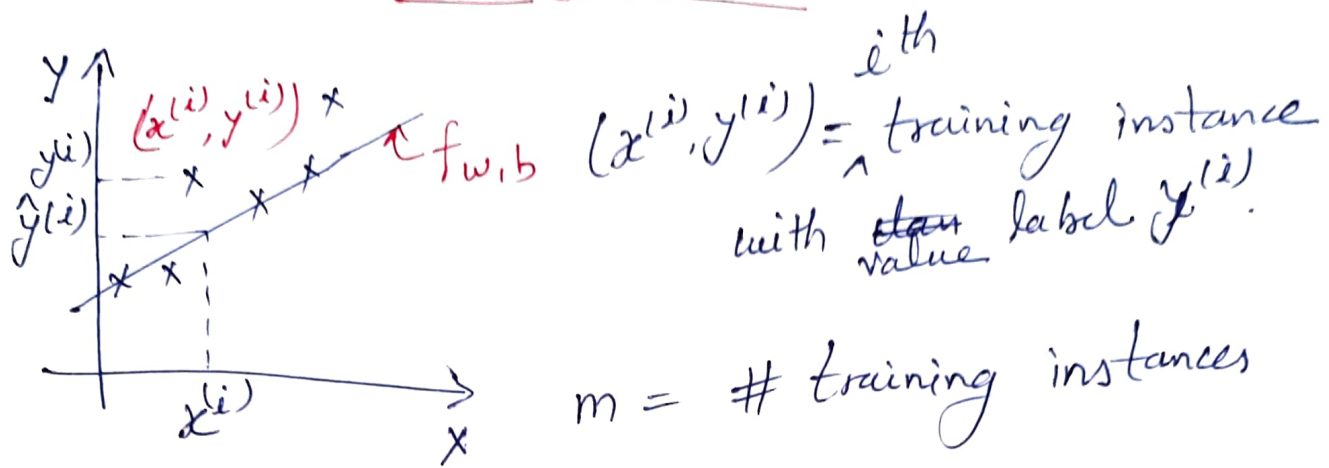 y
(x^(i), y^(i))
y^(i)
ŷ^(i)
f_w,b
x^(i)
x
i^th
(x^(i), y^(i)) = ^ training instance
with value label y^(i).
m = # training instances